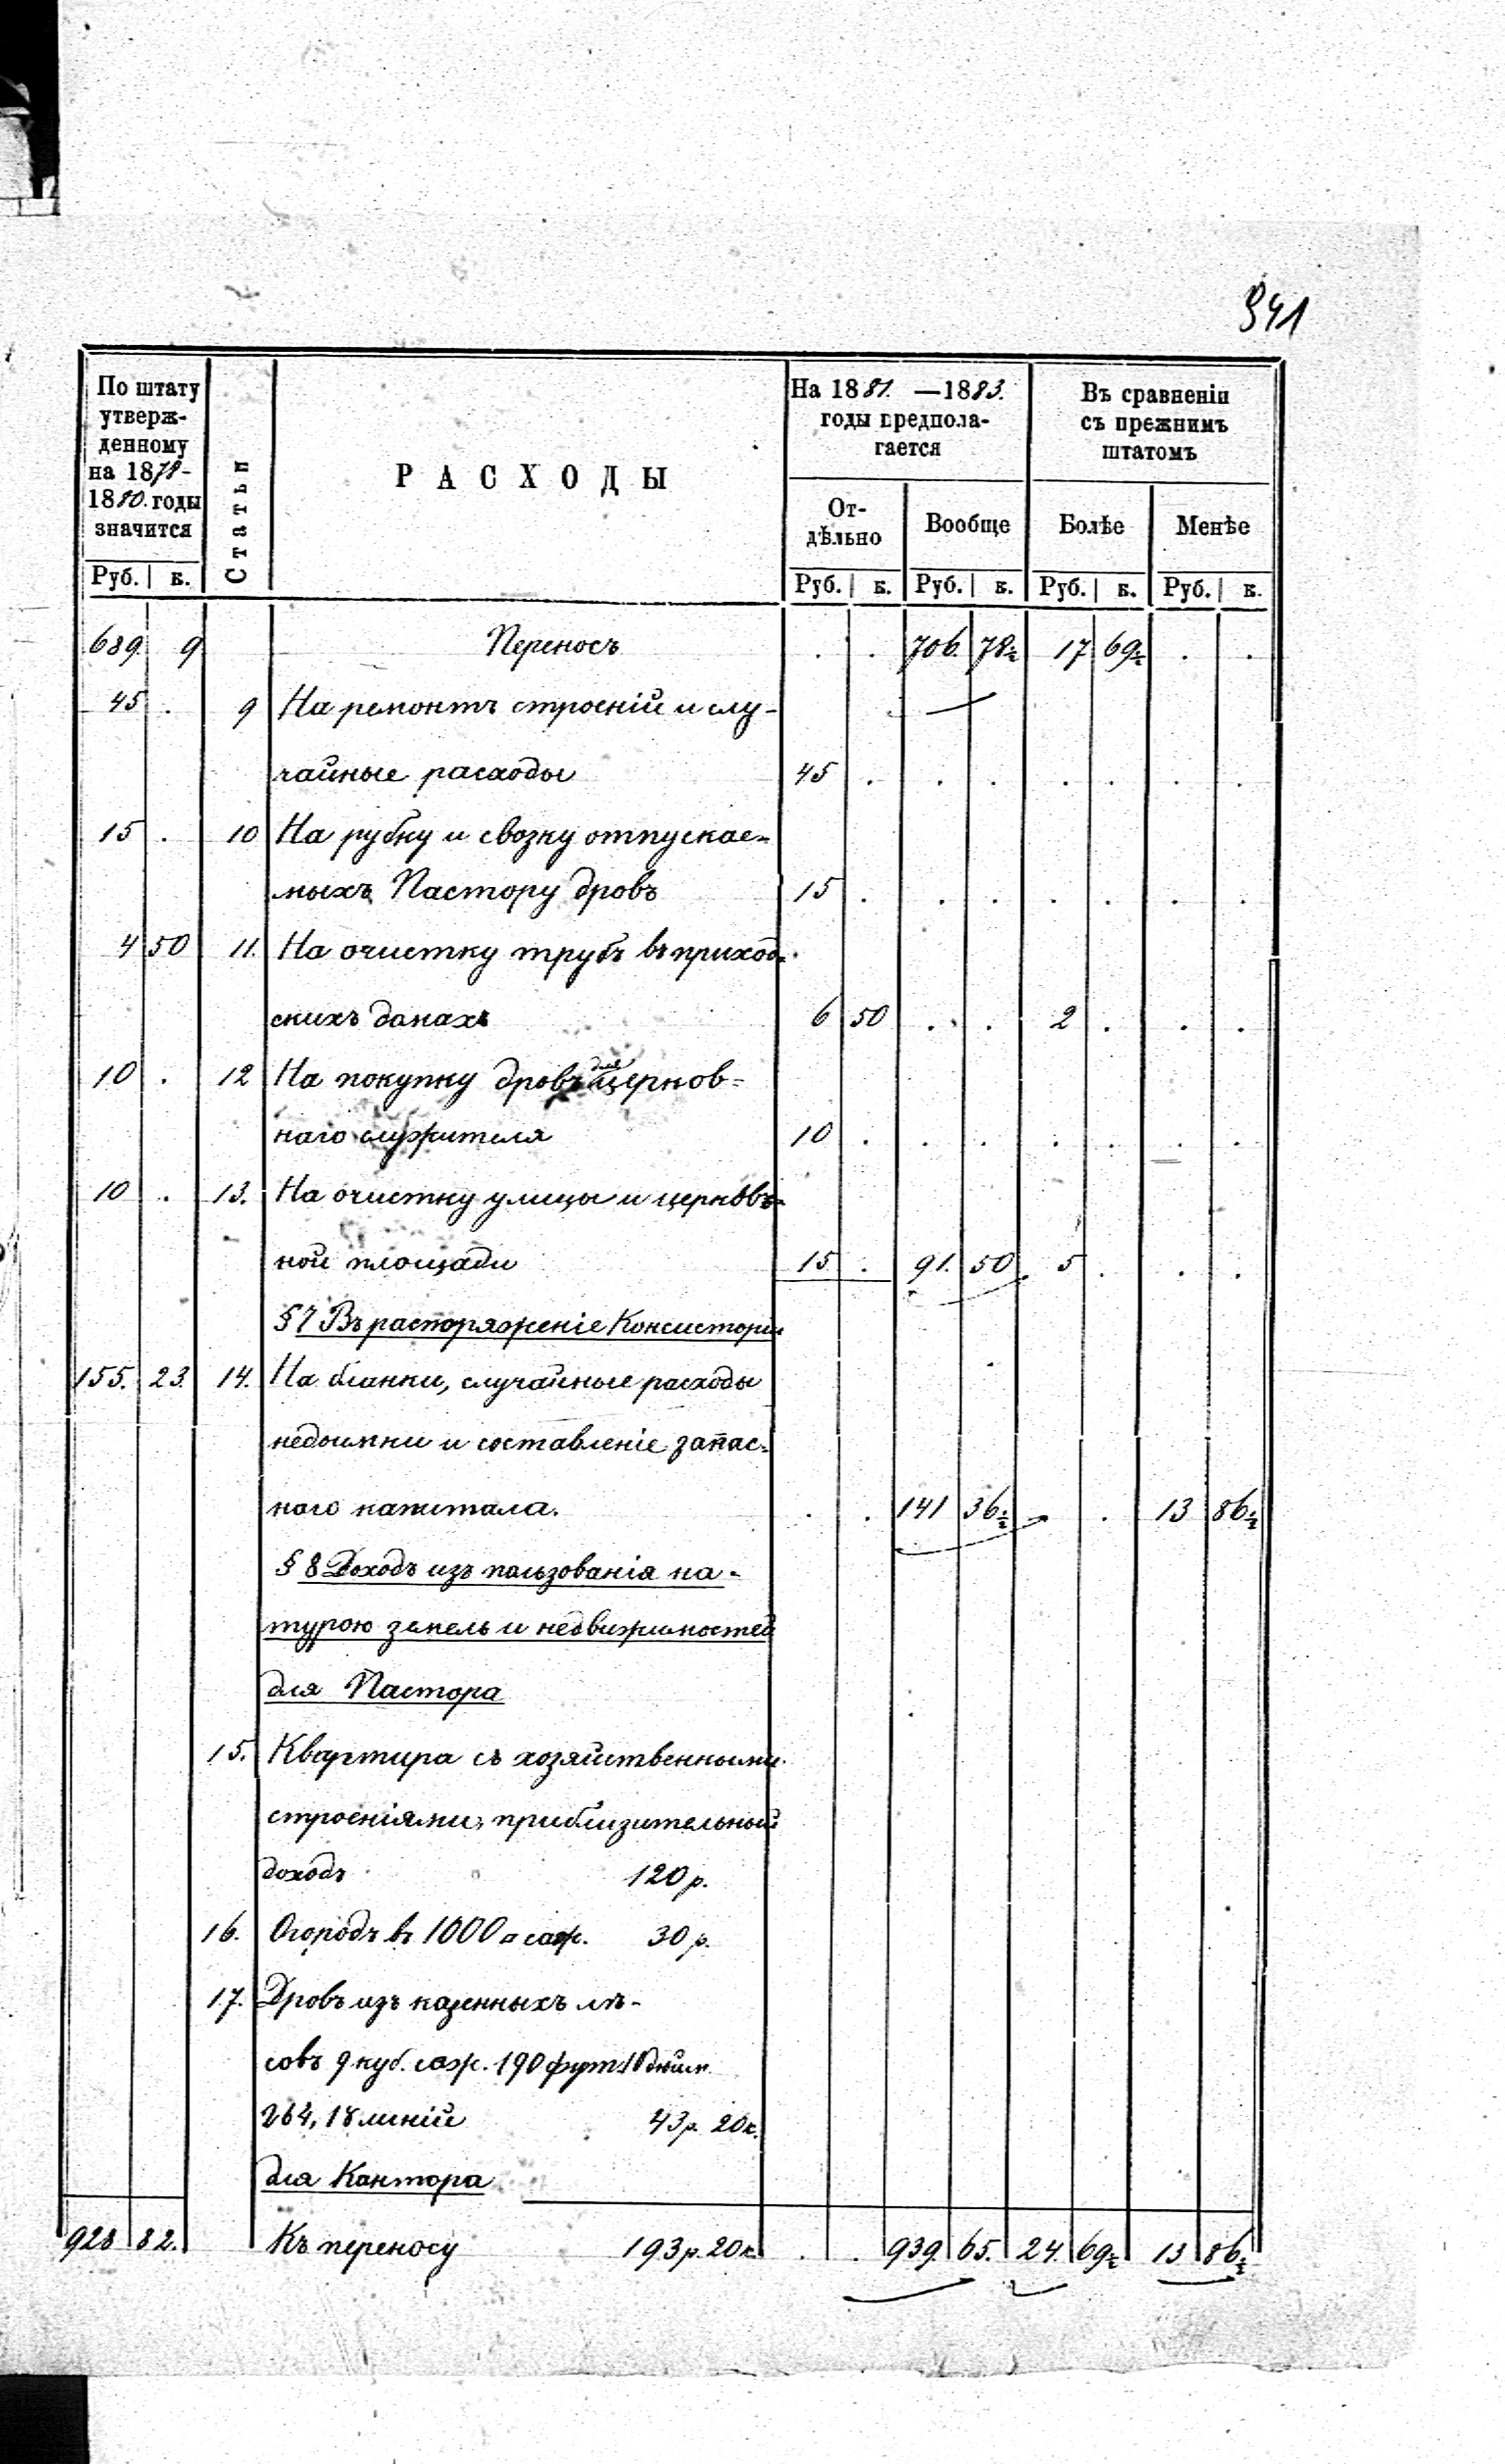 941
По штату утвержденному на 1878-1880. годы значится
Статьи
РАСХОДЫ
На 1881. —1883. годы предполагается
Въ сравненіи съ прежнимъ штатомъ
Отдѣльно Вообще Болѣе Менѣе
Руб. к. Руб. к. Руб. к. Руб. к. Руб. к.
689. 9 Переносъ . . 706. 78½ 17 69½ . .
45 . 9 На ремонтъ строеній и слу-
чайные расходы 45 . . . . . . .
15 . 10 На рубку и свозку отпускае-
мыхъ Пастору дровъ 15 . . . . . . .
4 50 11. На очистку трубъ въ приход-
скихъ домахъ 6 50 . . 2 . . .
10 . 12 На покупку дровъ для церков=
наго служителя 10 . . . . . . .
10 . 13. На очистку улицы и церков-
ной площади 15 . 91. 50 5 . . .
§ 7 Въ распоряженіе Консисторіи
155. 23. 14. На бланки, случайные расходы
недоимки и составленіе запас-
наго капитала. . . 141 36½ . . 13 86½
§ 8 Доходъ изъ пользованія на-
турою земель и недвижимостей
для Пастора
15. Квартира съ хозяйственными
строеніями, приблизительный
доходъ 120 р.
16. Огородъ въ 1000 □ саж. 30 р.
17. Дровъ изъ казенныхъ лѣ-
совъ 9 куб. саж. 190 фут. 10 дюйм.
264, 18 линій 43 р. 20 к.
для Кантора
928 82. Къ переносу 193 р. 20 к. . . 939. 65. 24. 69½ 13 86½